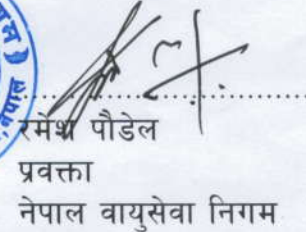 नेपाल
रमेश पौडेल
प्रवक्ता
नेपाल वायुसेवा निगम